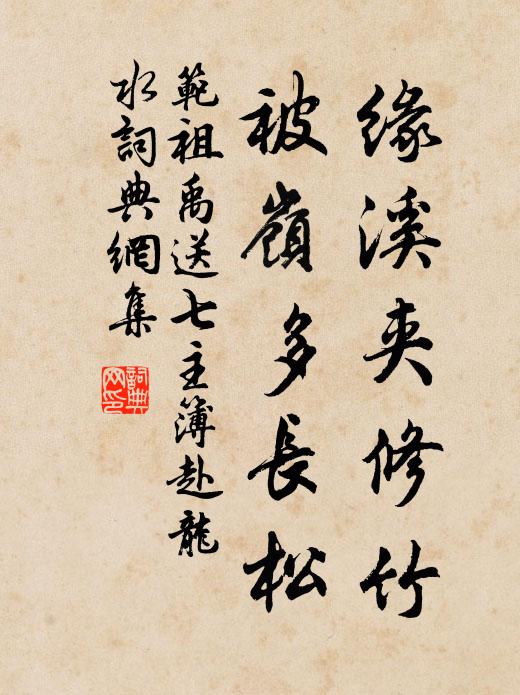 緣溪夾修竹
被嶺多長松
範祖禹送七主簿赴龍
水詞典網集
詞典
网印